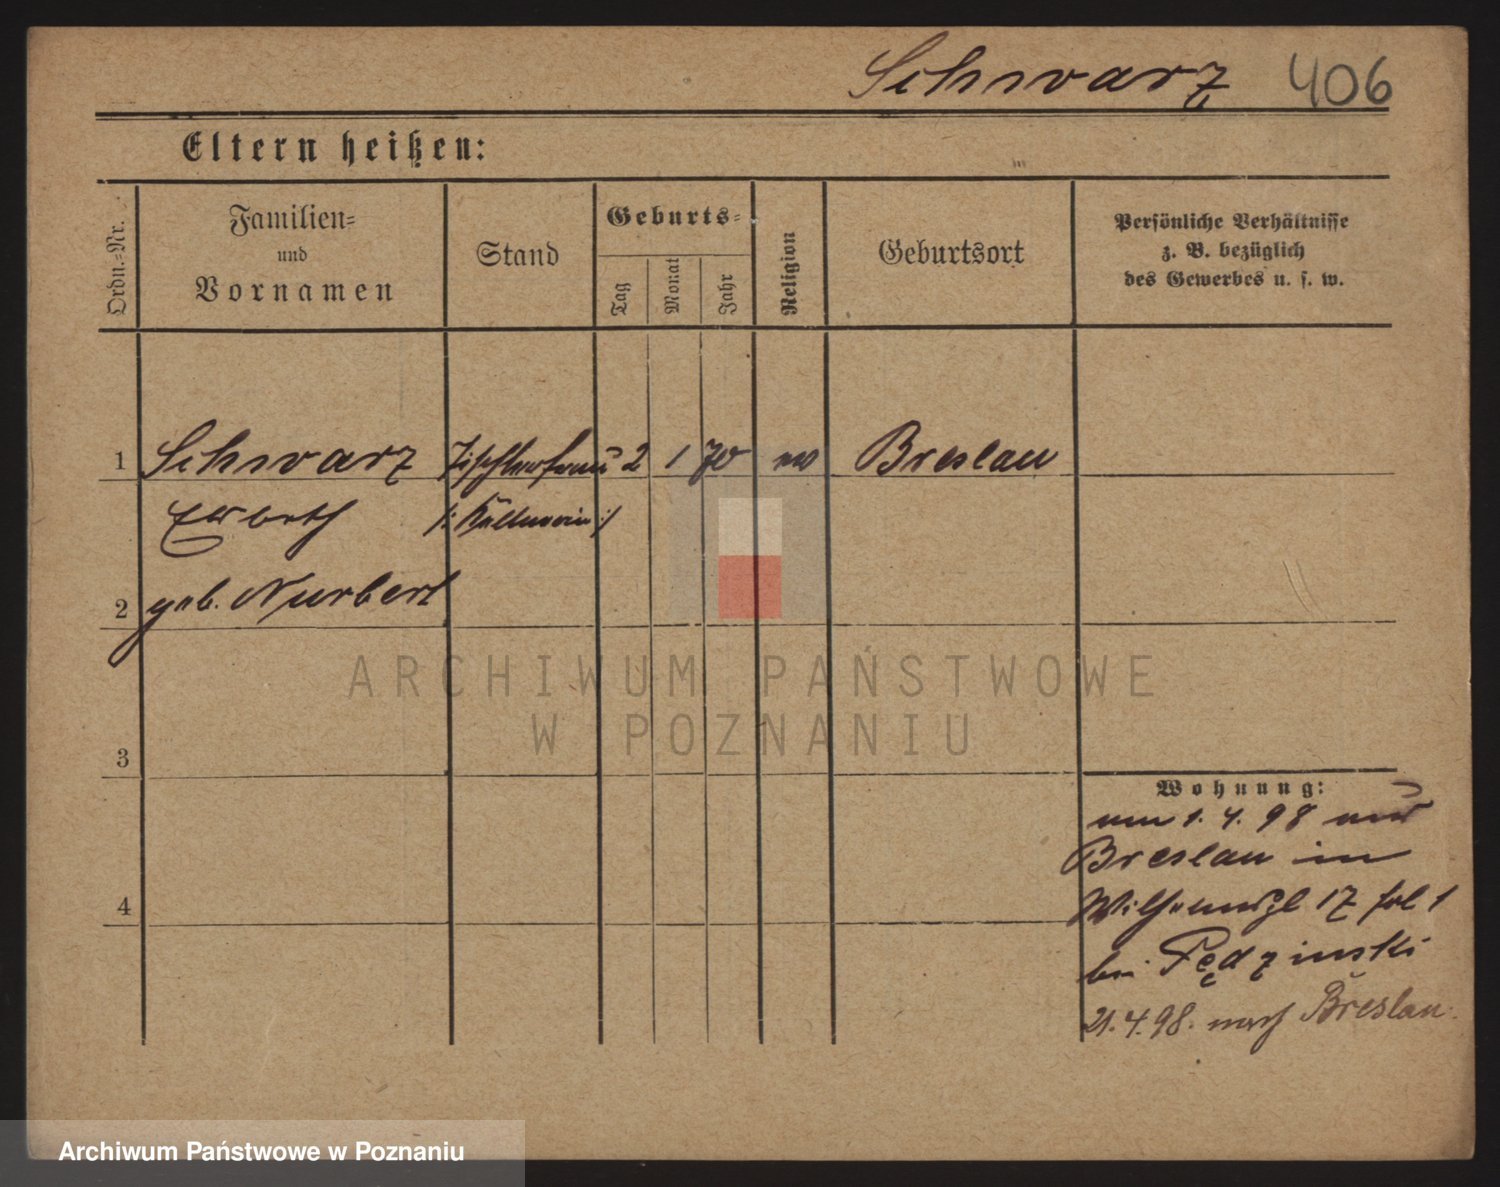 Schwarz 406
Eltern heißen:
Ordn.=Nr.
Familien=
und
Vornamen
Stand
Geburts=
Tag
Monat
Jahr
Religion
Geburtsort
Persönliche Verhältnisse
z. B. bezüglich
des Gewerbes u. s. w.
1 Schwarz Tischlerfrau 2 1 70 ev Breslau
/: Kellnerin :/
2 geb. Nurbert
3
4
Wohnung:
um 1. 4. 98 aus
Breslau in
17 1
bei Pędzinski
21. 4. 98. nach Breslau.
ARCHIWUM PAŃSTWOWE
W POZNANIU
Archiwum Państwowe w Poznaniu